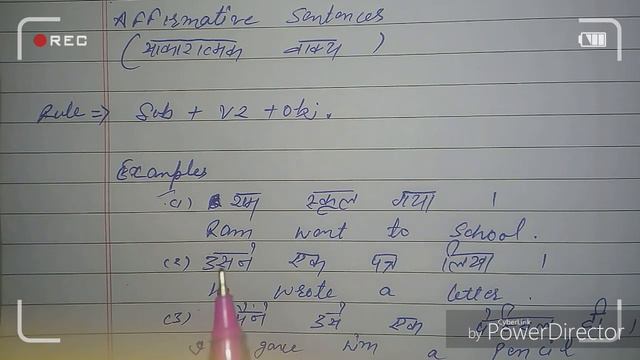 REC
Affirmative Sentences
(साकारात्मक वाक्य)
Rule => Sub + V2 + Obj.
Examples
(1) राम स्कूल गया ।
Ram want to School.
(2) उसने एक पत्र लिखा ।
wrote a letter.
(3) मैंने उसे एक पेन्सिल दी ।
I gave him a Pencil
CyberLink
by PowerDirector